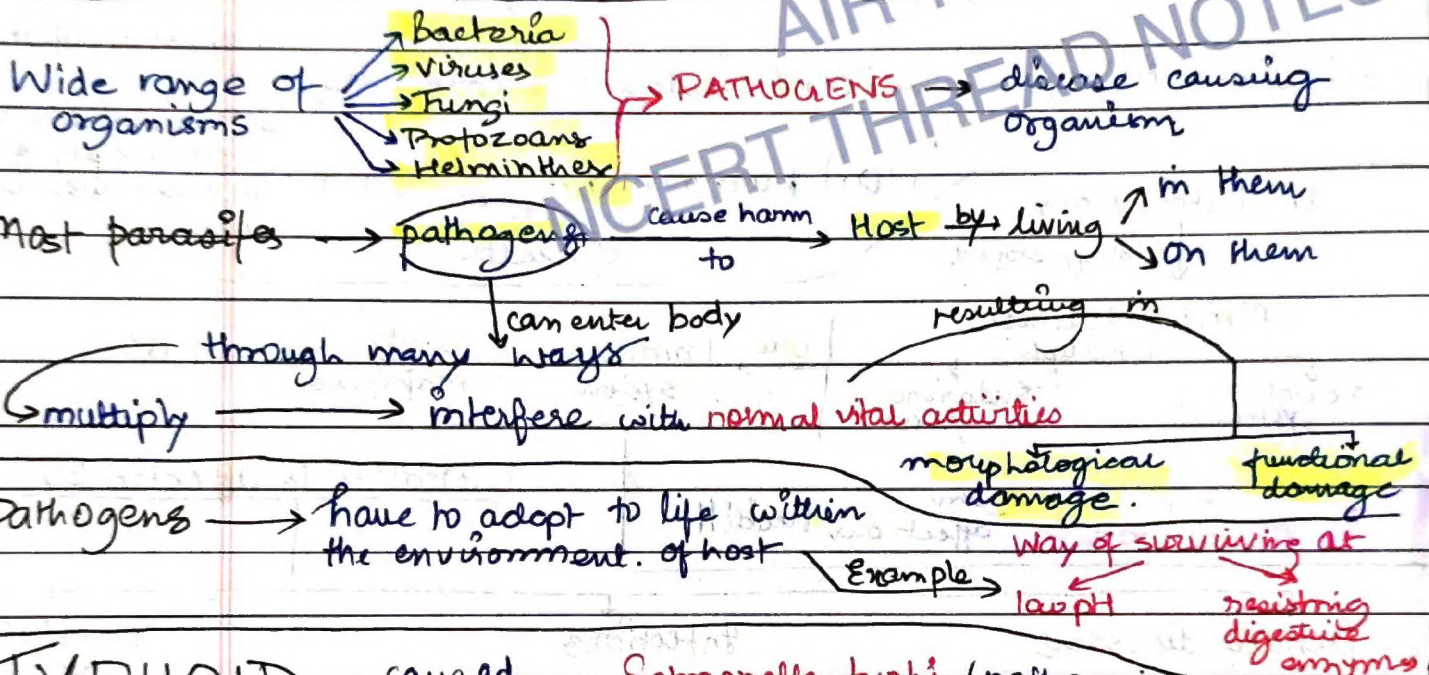 AIR
NCERT THREAD NOTES
Wide range of organisms
Bacteria
Viruses
Fungi
Protozoans
Helminthes
PATHOGENS → disease causing organism
Most parasites → pathogens cause harm to Host by living
in them
on them
can enter body
through many ways
resulting in
multiply → interfere with normal vital activities
morphological damage.
functional damage
Pathogens → have to adopt to life within
the environment. of host
Example
way of surviving at
low pH
resisting digestive enzymes
TYPHOID caused Salmonella typhi